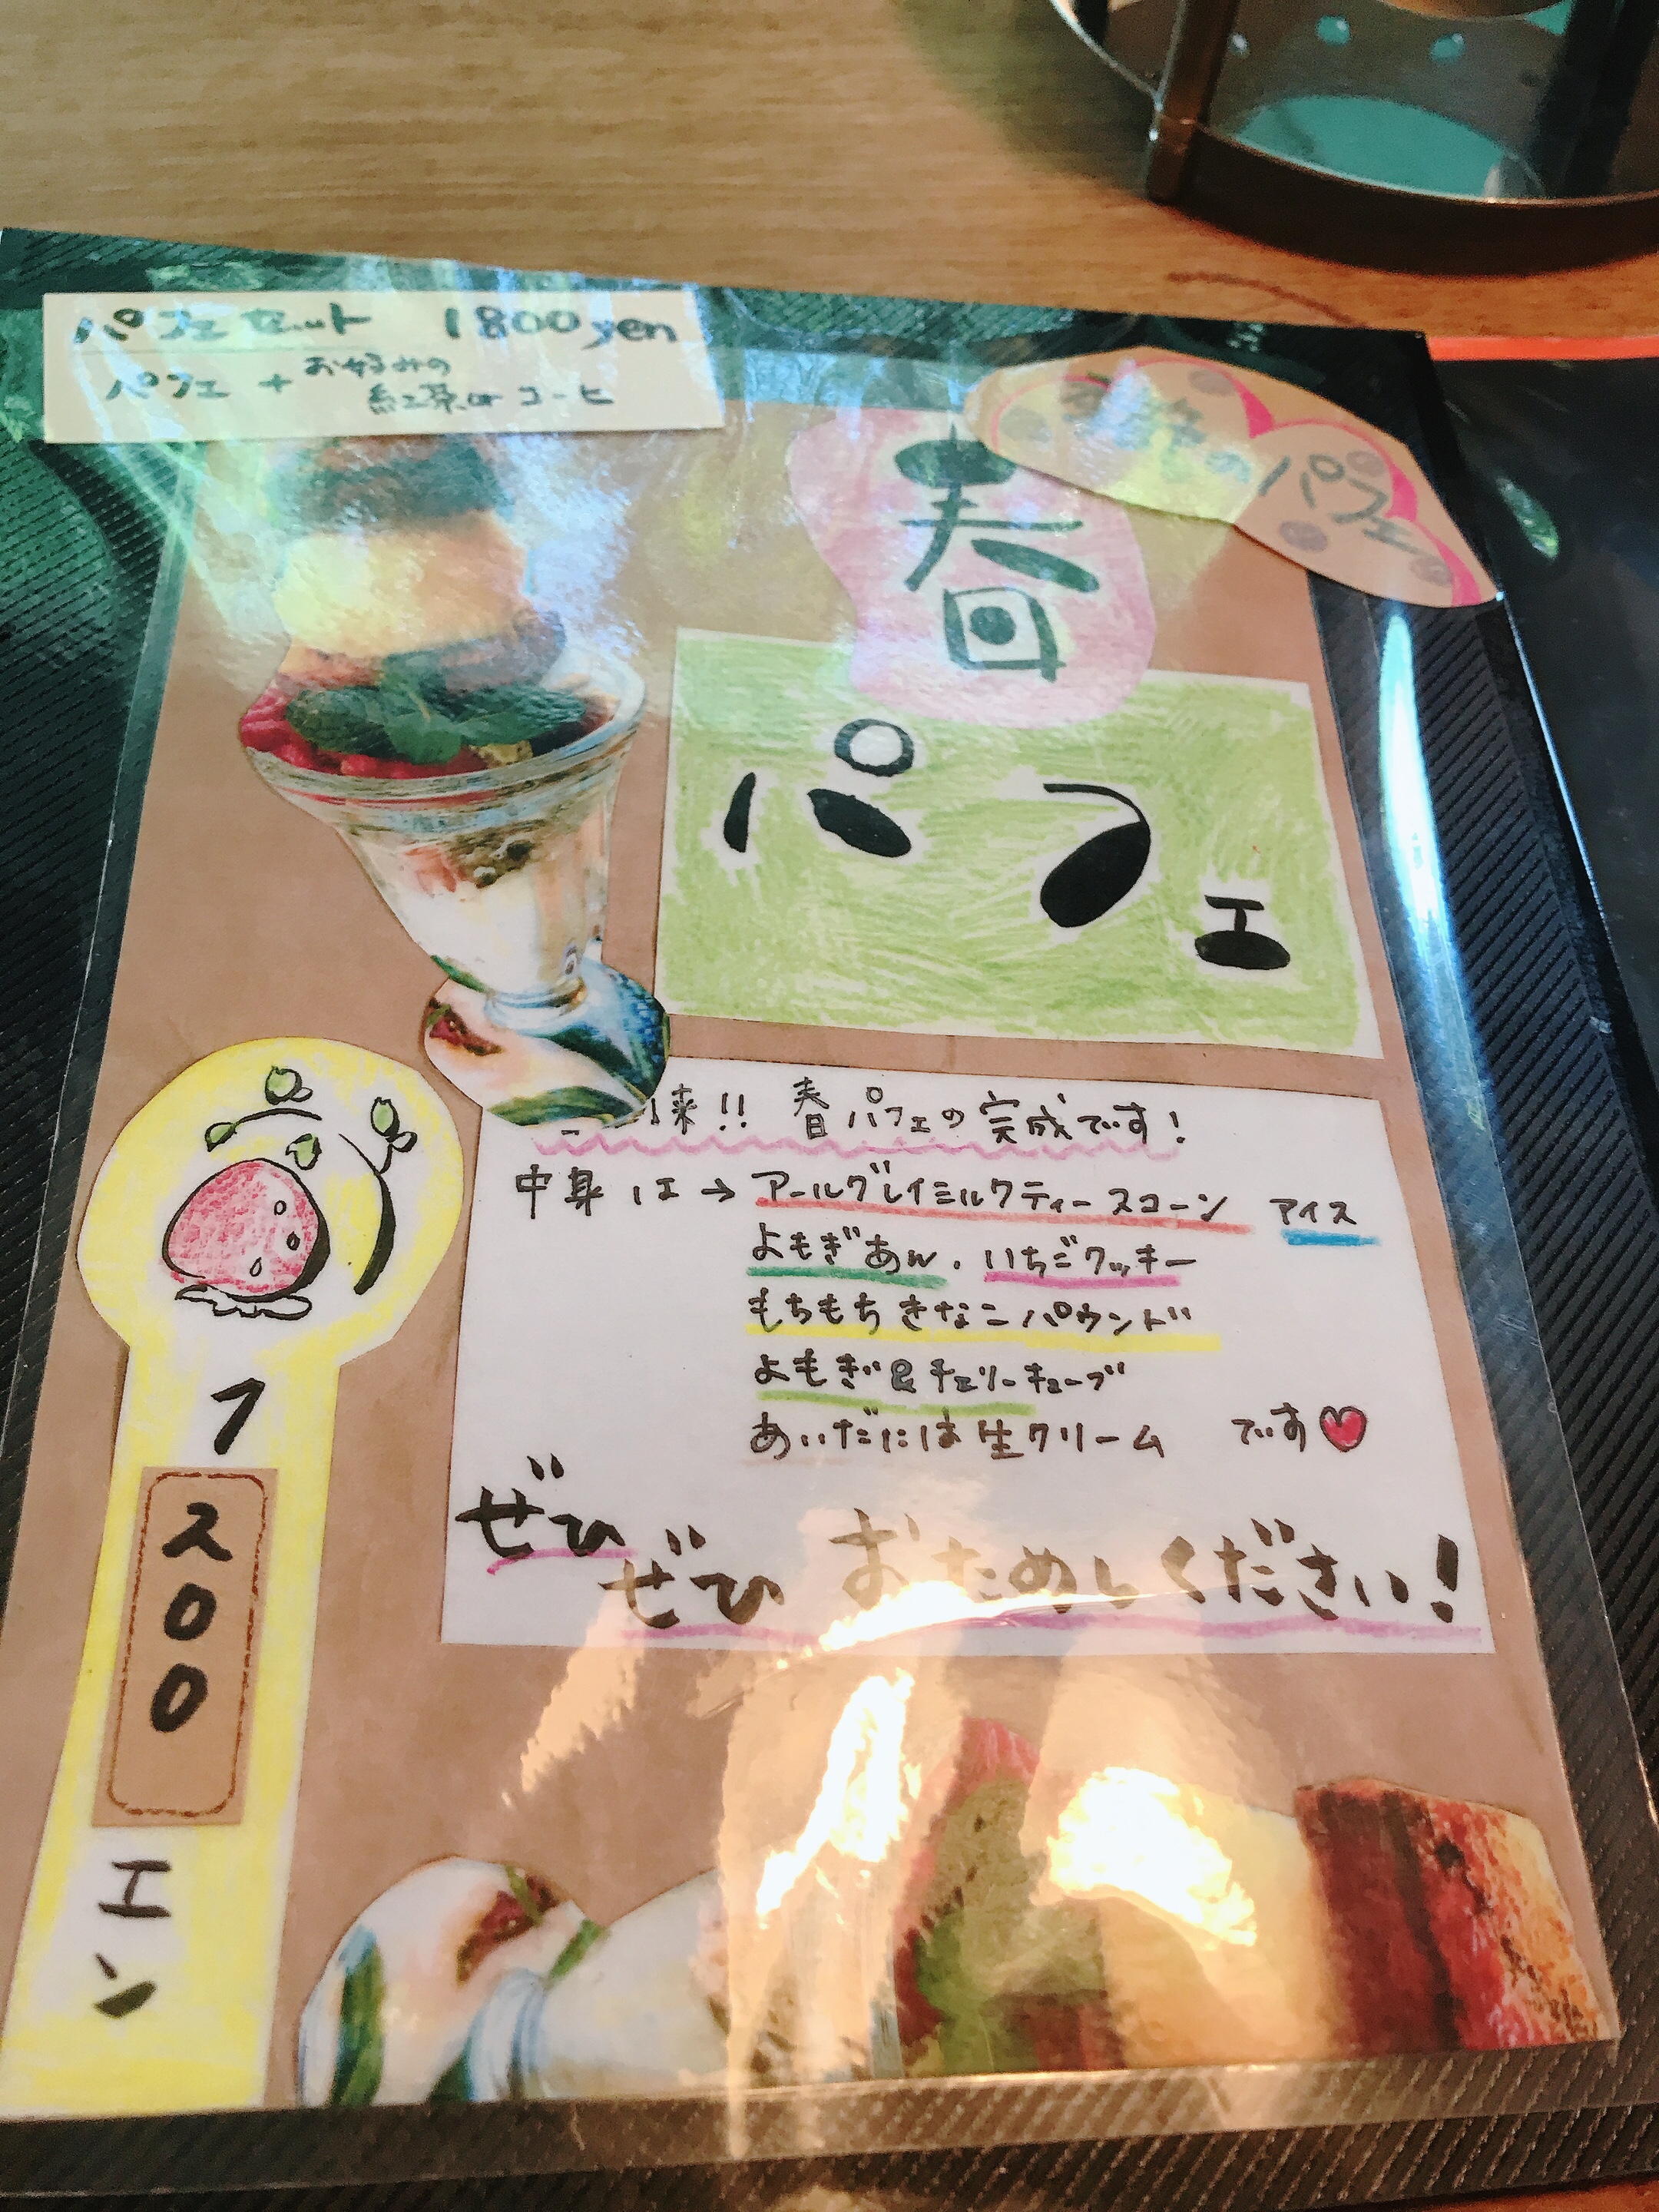 パフェセット 1800yen
パフェ + お好みの
紅茶or コーヒ
のパフェ
春
パフェ
来!! 春パフェの完成です!
中身は→アールグレイミルクティースコーン アイス
よもぎあん・いちごクッキー
もちもちきなこパウンド
よもぎ&チェリーキューブ
あいだには生クリーム です
ぜひ
ぜひ おためしください!
1
200
エン